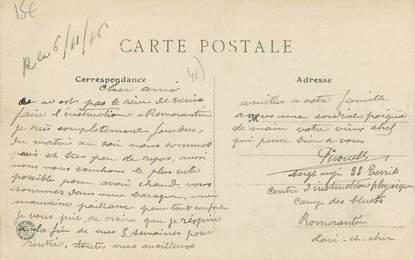 15€
R le 6/11/16
CARTE POSTALE
Correspondance
Adresse
Cher ami
ce n'est pas le rêve de venir
faire l'instruction a Romorantin
je suis complètement fourbu,
du matin au soir nous sommes
et tres peu de repos, aussi
nous nous couchons le plus vite
possible pour avoir chaud, nous
sommes dans une baraque, une
mauvaise paillasse pour tout confort
je vous prie de croire que je
la fin de mes 3 semaines pour
toutes mes meilleurs
amitiés a votre famille
avec une cordiale poignée
de main votre vieux chef
qui pense bien a vous
88 Territ
Centre d'instruction physique
Camp des
Romorantin
Loir-et-cher